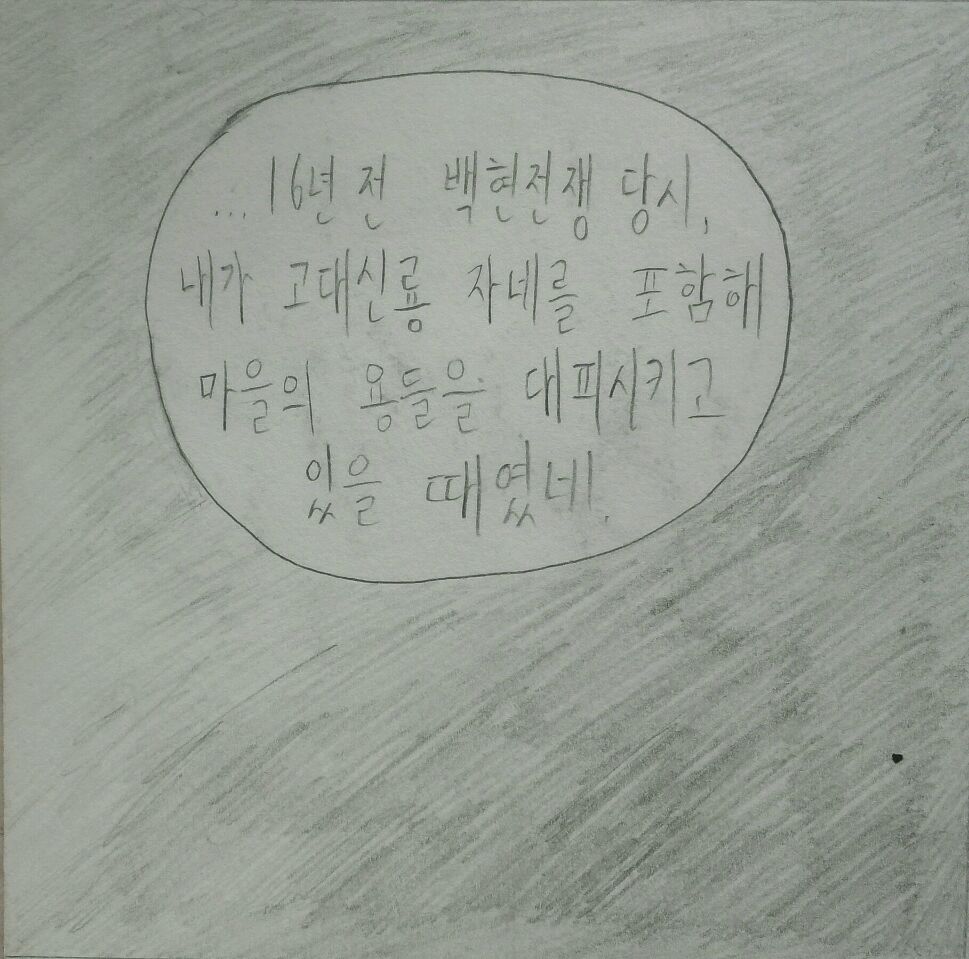 ...16년 전 백현전쟁 당시,
내가 고대신룡 자네를 포함해
마을의 용들을 대피시키고
있을 때였네.